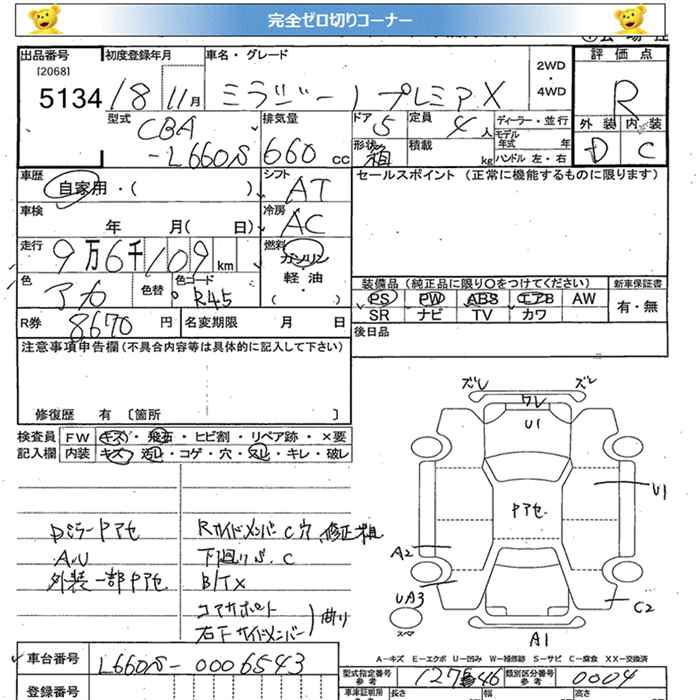 完全ゼロ切りコーナー
出品番号 初度登録年月 車名・グレード 2WD・4WD 評価点
[2068]
5134 18 11月 ミラジーノ プレミアX R
型式 排気量 ドア 定員 ディーラー・並行 外装 内装
CBA 5 4人 モデル年式 年
-L660S 660cc 形状 箱 積載 kg ハンドル 左・右 D C
車歴 シフト セールスポイント(正常に機能するものに限ります)
自家用・( ) AT
車検 冷房
年 月( 日) AC
走行 燃料
9万6千109km ガソリン
色 色替 色コード 軽油
アカ R45 ( ・ )
装備品(純正品に限り○をつけてください) 新車保証書
PS PW ABS エアB AW 有・無
SR ナビ TV カワ
R券 8670円 名変期限 月 日
後日品
注意事項申告欄(不具合内容等は具体的に記入して下さい)
修復歴 有〔箇所 〕
検査員 FW キズ・飛石・ヒビ割・リペア跡・×要
記入欄 内装 キズ・汚レ・コゲ・穴・スレ・キレ・破レ
PミラーPアセ RサイドメンバーC穴、修正粗
A.U 下廻りS.C
外装一部Pアセ B/TX
コアサポート
右下サイドメンバー 曲り
ズレ ズレ
ワレ
U1
Pアセ
U1
A2
UA3
C2
スペア
A1
A-キズ E-エクボ U-凹み W-補修跡 S-サビ C-腐食 XX-交換済
車台番号 L660S-0006543
型式指定番号 参考 類別区分番号 参考 0004
登録番号 車庫証明用 参考 長さ 幅 高さ